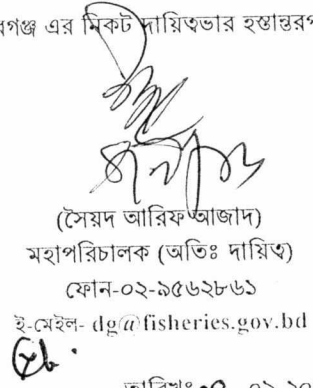 এর নিকট দায়িত্বভার
(সৈয়দ আরিফ আজাদ)
মহাপরিচালক (অতিঃ দায়িত্ব)
ফোন-০২-৯৫৬২৮৬১
ই-মেইল- dg@fisheries.gov.bd